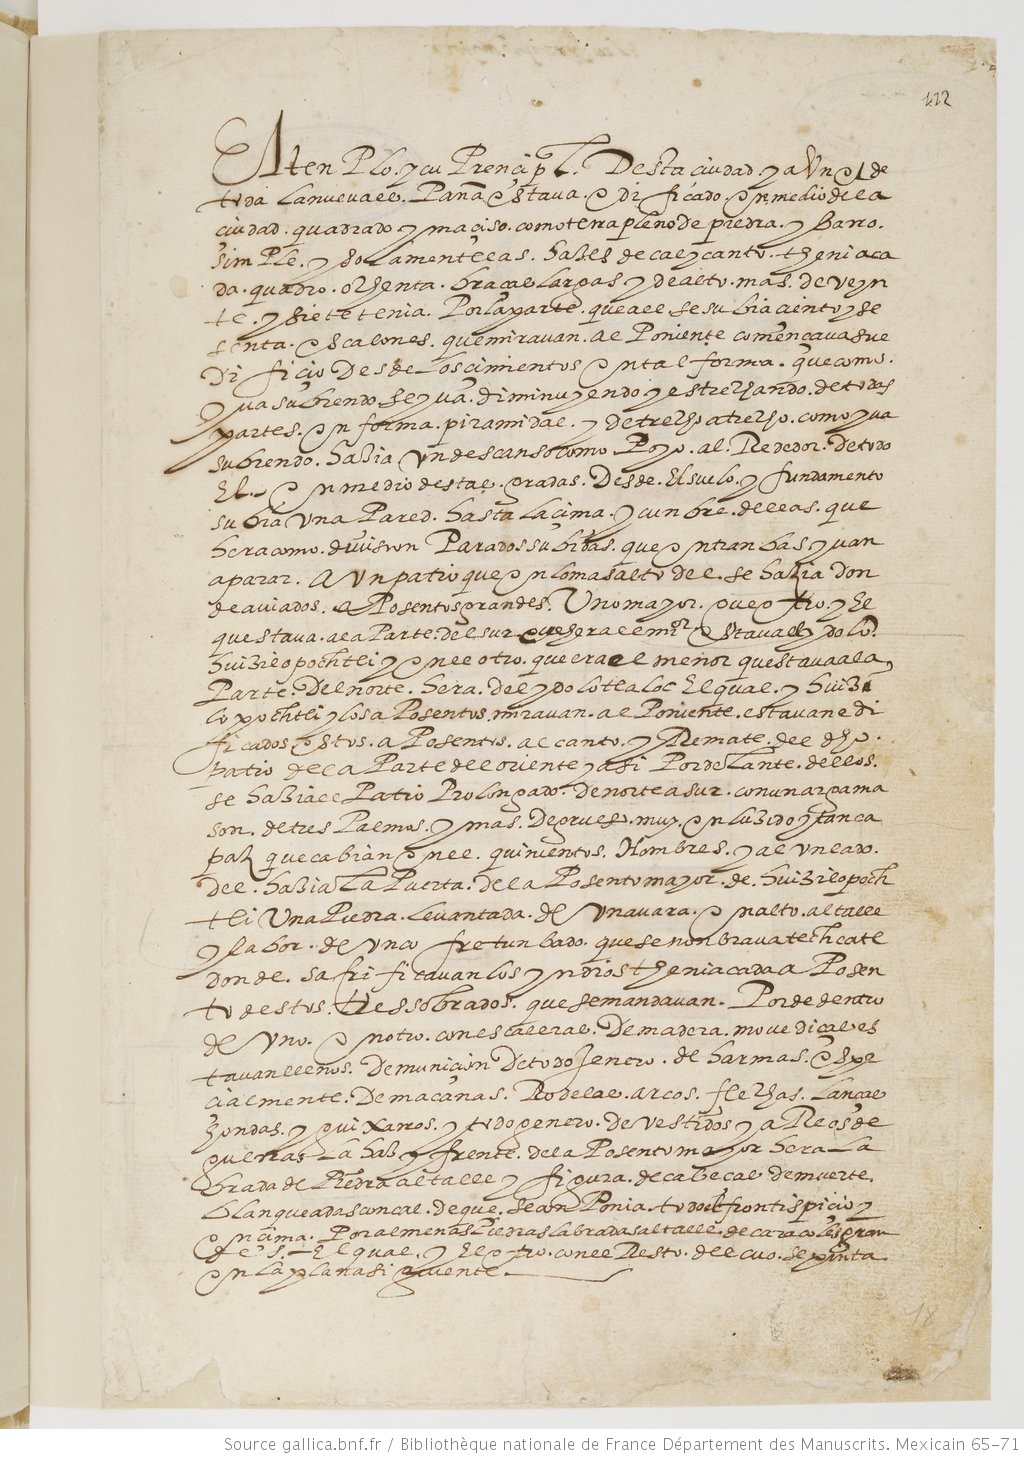 122
El tenplo y cu Prencipl. Desta ciudad. y aUn el de
toda la nueva es. Paña Estava. e di ficado. en medio de la
ciudad. quadrado y maçiso. como terrapleno de piedra. y Barro.
simPle. y solamente las. hazes de cal y canto. theni a ca
da. quadro. ochenta. braças largas y de alto. mas. de veyn
te. y siete tenia. Por la parte. que a el se subia ciento y se
senta. escalones. que miravan. al Poniente començava su e
di ficio Desde los cimientos en tal forma. que como.
yva subiendo se yva. diminuyendo y estrechando. de todas
partes. en forma. piramidal. y de trecho a trecho. como yva
subiendo. hazia Un descanso como Poyo. al. Rededor. de todo
El. en medio destas. gradas. Desde. El suelo. y fundamento
subia Una Pared. hasta la cima. y cunbre. dellas. que
hera como. division Para dos subidas. que entranbas yvan
a parar. a Un patio que en lo mas alto del. se hazia don
de avia dos. aPosentos grandes. Uno mayor. que otro. y El
questava. a la Parte. del sur que hera el mor estava El ydolo
huizilopochtli y en el otro. que era el menor questava a la
Parte. Del norte. hera. del ydolo tlaloc El qual. y huizi
lopochtli y los aPosentos. miravan. al Poniente. estavan edi
ficados estos. aPosentos. al canto. y Remate. del dho.
patio de la Parte del oriente y asi Por delante. dellos.
se hazia el Patio Prolongado. de norte a sur. con un argama
son. de tres Palmos. y mas. De grueso. muy. enluzido y tan ca
paz que cabian en el. quinientos. Hombres. y al un lado.
del. hazia La Puerta. de la Posento mayor. de. huizilopoch
tli Una Piedra. levantada. de Una vara. en alto. al talle
y labor. de Un cofre tunbado. que se nonbrava techcatl
donde. sa fri fi cavan los yndios thenia cada aPosen
to destos. tres sobrados. que se mandavan. Por de dentro
de Uno. en otro. con escaleras. De madera. movedicas es
tavan llenos. De municion De todo Jenero. de harmas. espe
cialmente. De macanas. Rodelas. arcos. flechas. Lanças
hondas. y guixarros. y todo genero. de vestidos y aReos de
guerras La haz y frente. de la Posento mayor hera La
brada de Piedra al talle y figura. de cabeças De muerte.
blanqueadas con cal. de que se ornaPonia. todo el frontispicio y
encima. Por almenas Piedras labradas al talle. de caracoles gran
des. El qual. y El otro. con el Resto. del cuo. se pinta
en la plana si guiente.
18
Source gallica.bnf.fr / Bibliothèque nationale de France Département des Manuscrits. Mexicain 65-71